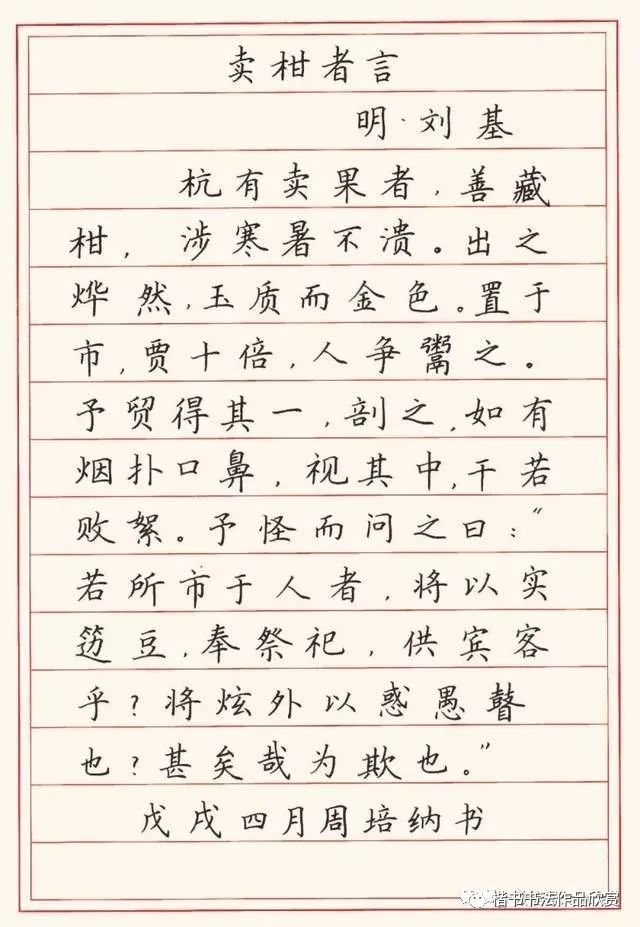 卖柑者言
明·刘基
杭有卖果者,善藏
柑,涉寒暑不溃。出之
烨然,玉质而金色。置于
市,贾十倍,人争鬻之。
予贸得其一,剖之,如有
烟扑口鼻,视其中,干若
败絮。予怪而问之曰:“
若所市于人者,将以实
笾豆,奉祭祀,供宾客
乎?将炫外以惑愚瞽
也?甚矣哉为欺也。”
戊戌四月周培纳书
楷书书法作品欣赏